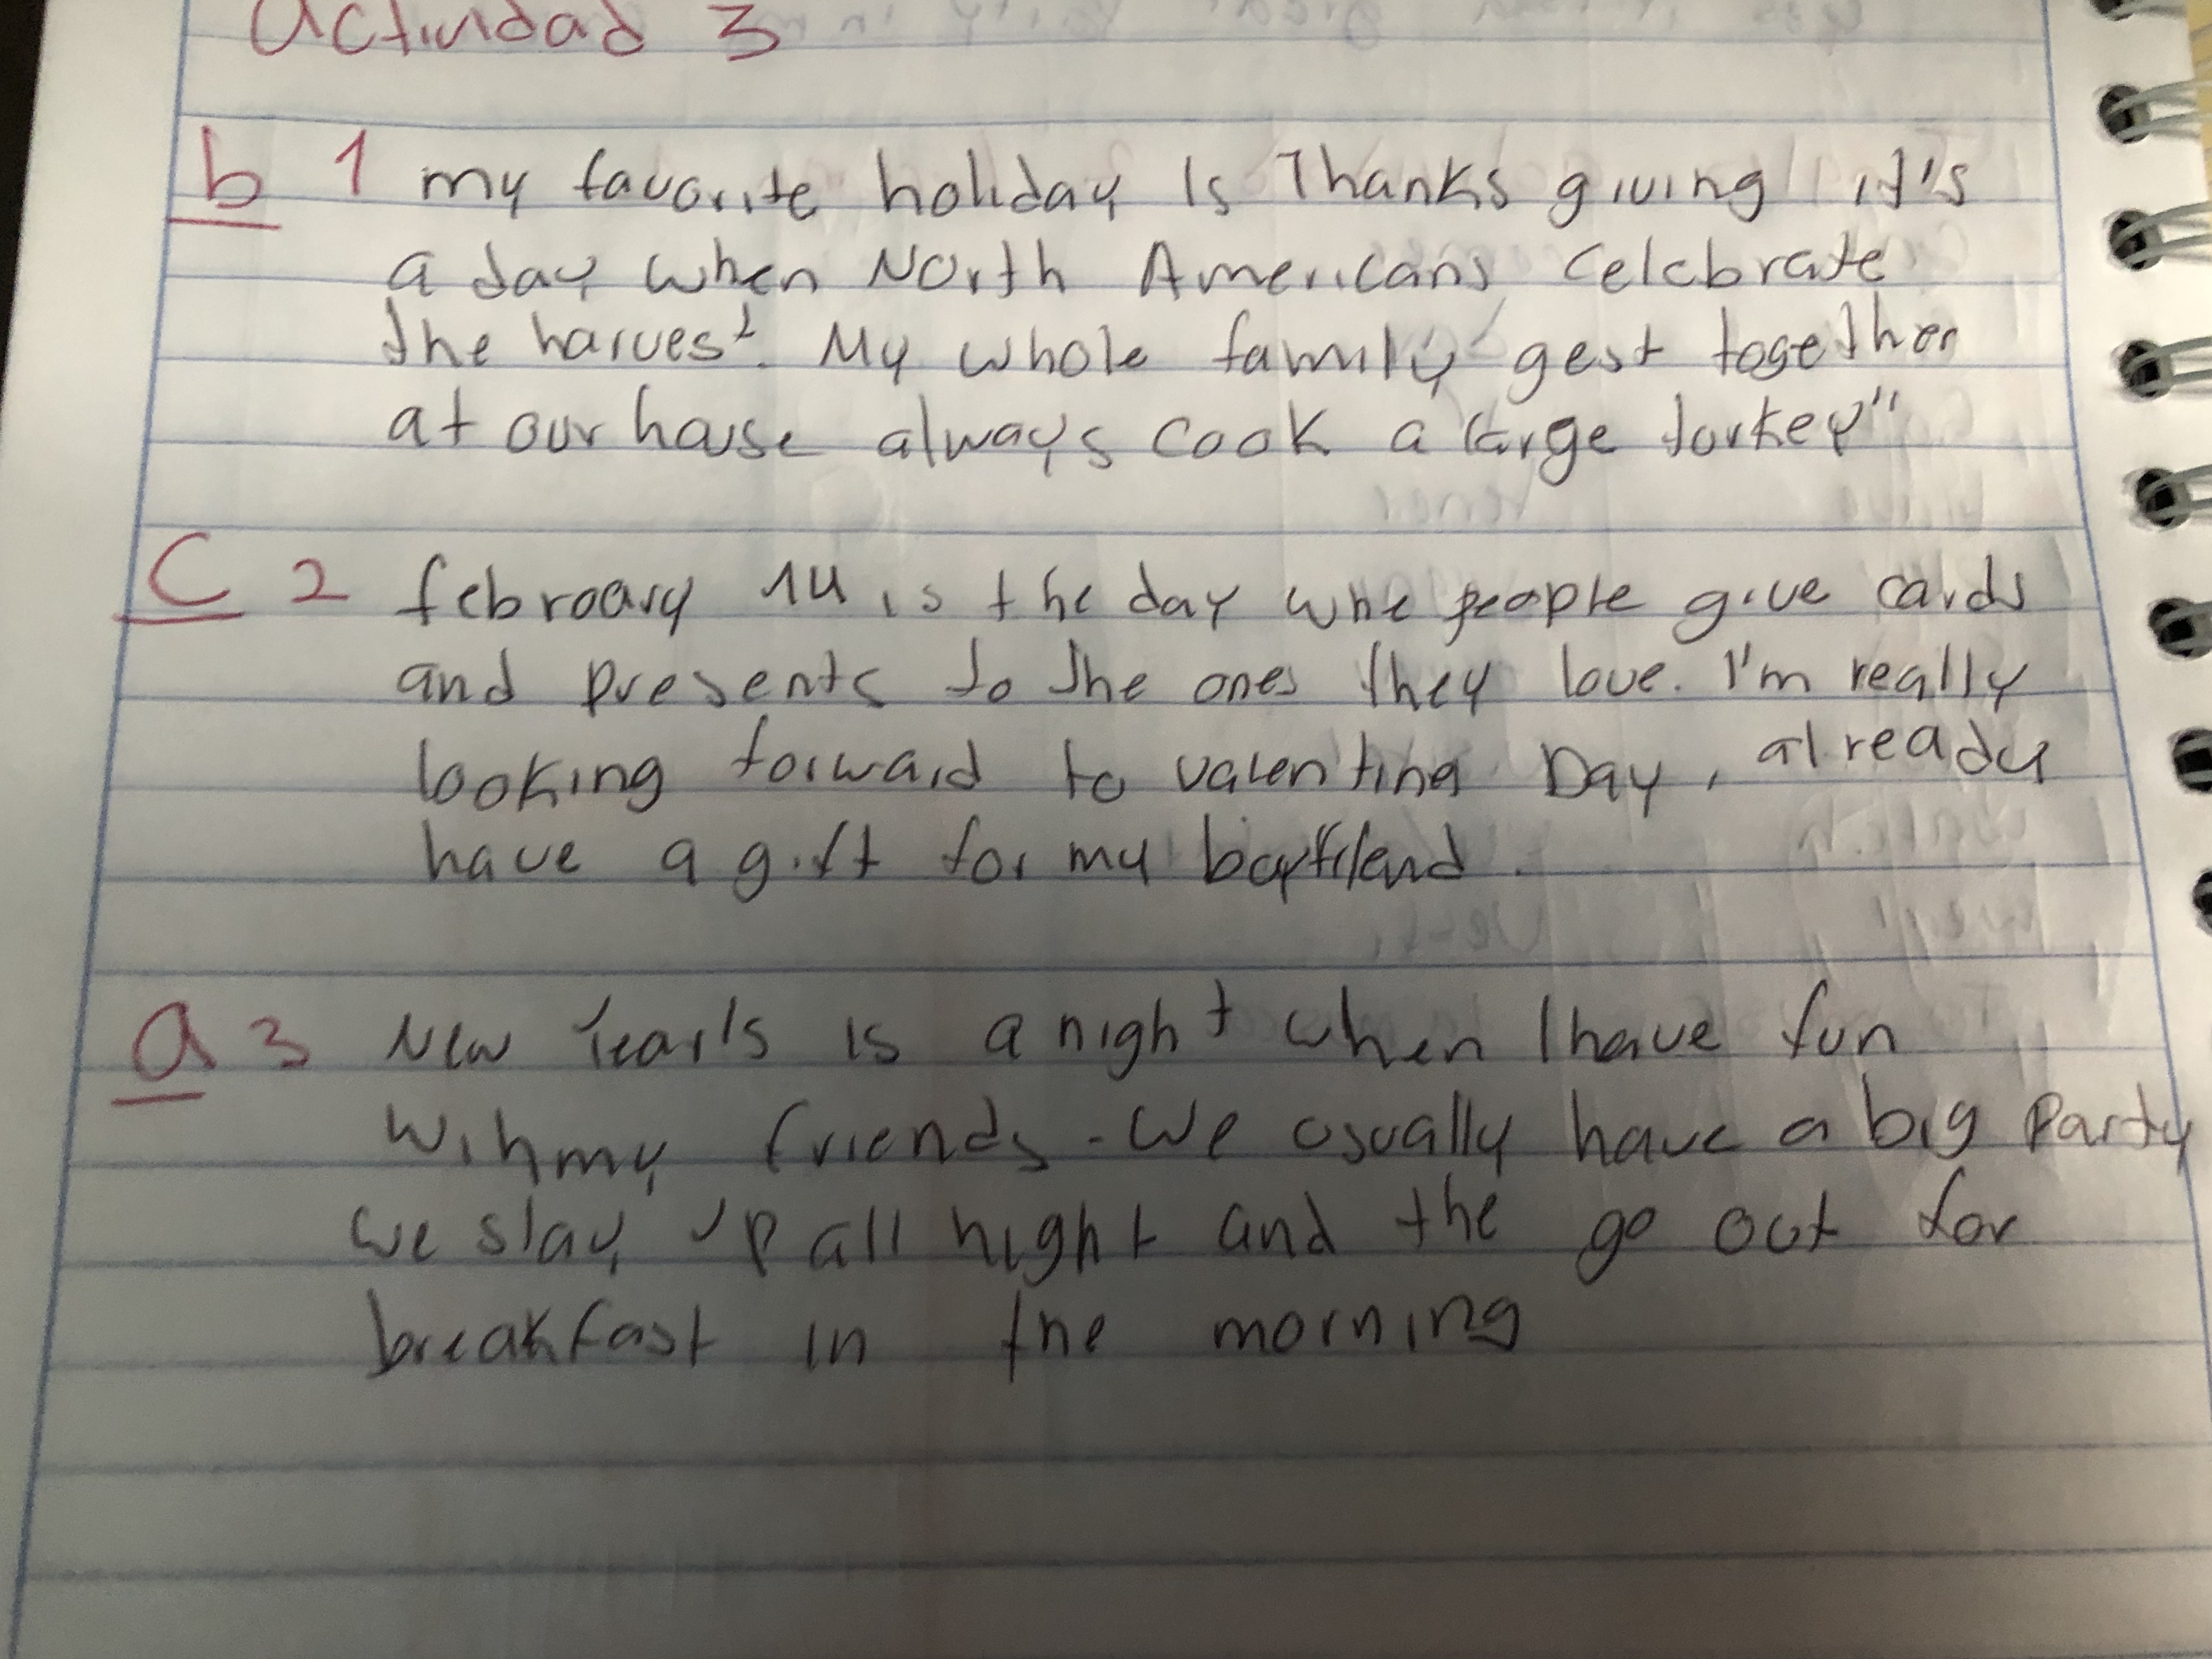 Actividad 3
b 1 my favorite holiday is Thanks giving it's
a day when North Americans celebrate
the harvest. My whole family gest together
at our house always cook a large turkey"
C 2 february 14 is the day whe people give cards
and presents to the ones they love. I'm really
looking forward to valentina Day, already
have a gift for my boyfriend.
a 3 New Year's is a night when I have fun
wihmy friends - We usually have a big Party
we stay up all night and the go out for
breakfast in the morning